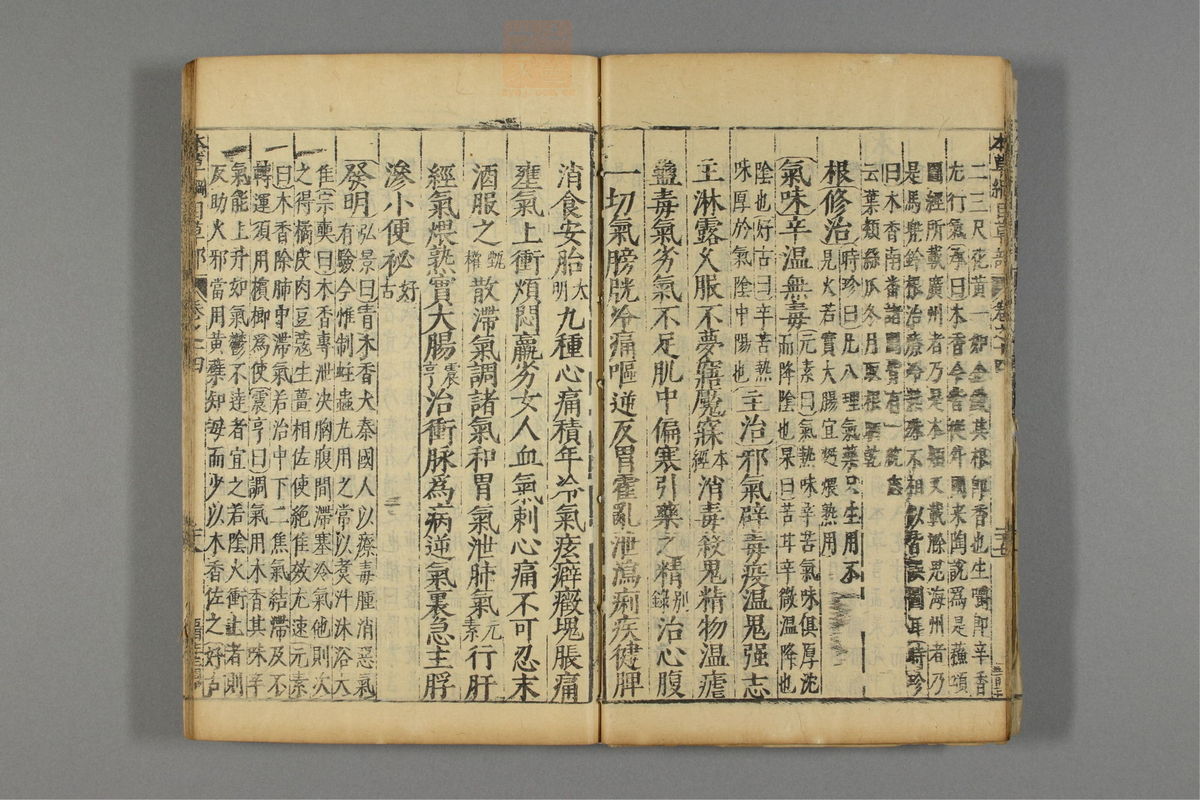 二三尺花黃一如金其根即香也生嚼即辛香
尤行氣承曰木香今皆從外國來陶說爲是蘓頌
圖經所載廣州者乃是木類又載滁冕海州者乃
是馬兜鈴根治療冷熱殊不相似皆誤圖耳時珍
曰木香南番諸國皆有一統志
云葉類絲瓜冬月取根晒乾
根修治時珍曰凡入理氣藥只生用不
見火若實大腸宜麫煨熟用
氣味辛温無毒元素曰氣熱味辛苦氣味俱厚沈
而降陰也杲曰苦甘辛微温降也
陰也好古曰辛苦熱
味厚於氣陰中陽也主治邪氣辟毒疫温鬼强志
主淋露久服不夢寤魘寐本經消毒殺鬼精物温瘧
蠱毒氣劣氣不足肌中偏寒引藥之精别録治心腹
一切氣膀胱冷痛嘔逆反胃霍亂泄瀉痢疾健脾
消食安胎大明九種心痛積年冷氣痃癖癥塊脹痛
壅氣上衝煩悶羸劣女人血氣刺心痛不可忍末
酒服之甄權散滯氣調諸氣和胃氣泄肺氣元素行肝
經氣煨熟實大腸震亨治衝脉爲病逆氣裏急主脬
滲小便祕好古
發明弘景曰青木香大秦國人以療毒腫消惡氣
有驗今惟制蛀蟲丸用之常以煮汁沐浴大
佳宗奭曰木香專泄决胸腹間滯塞冷氣他則次
之得橘皮肉豆蔻生薑相佐使絕佳效尤速元素
曰木香除肺中滯氣若治中下二焦氣結滯及不
轉運須用檳榔爲使震亨曰調氣用木香其味辛
氣能上升如氣鬱不達者宜之若陰火衝上者則
反助火邪當用黃蘗知母而少以木香佐之好古